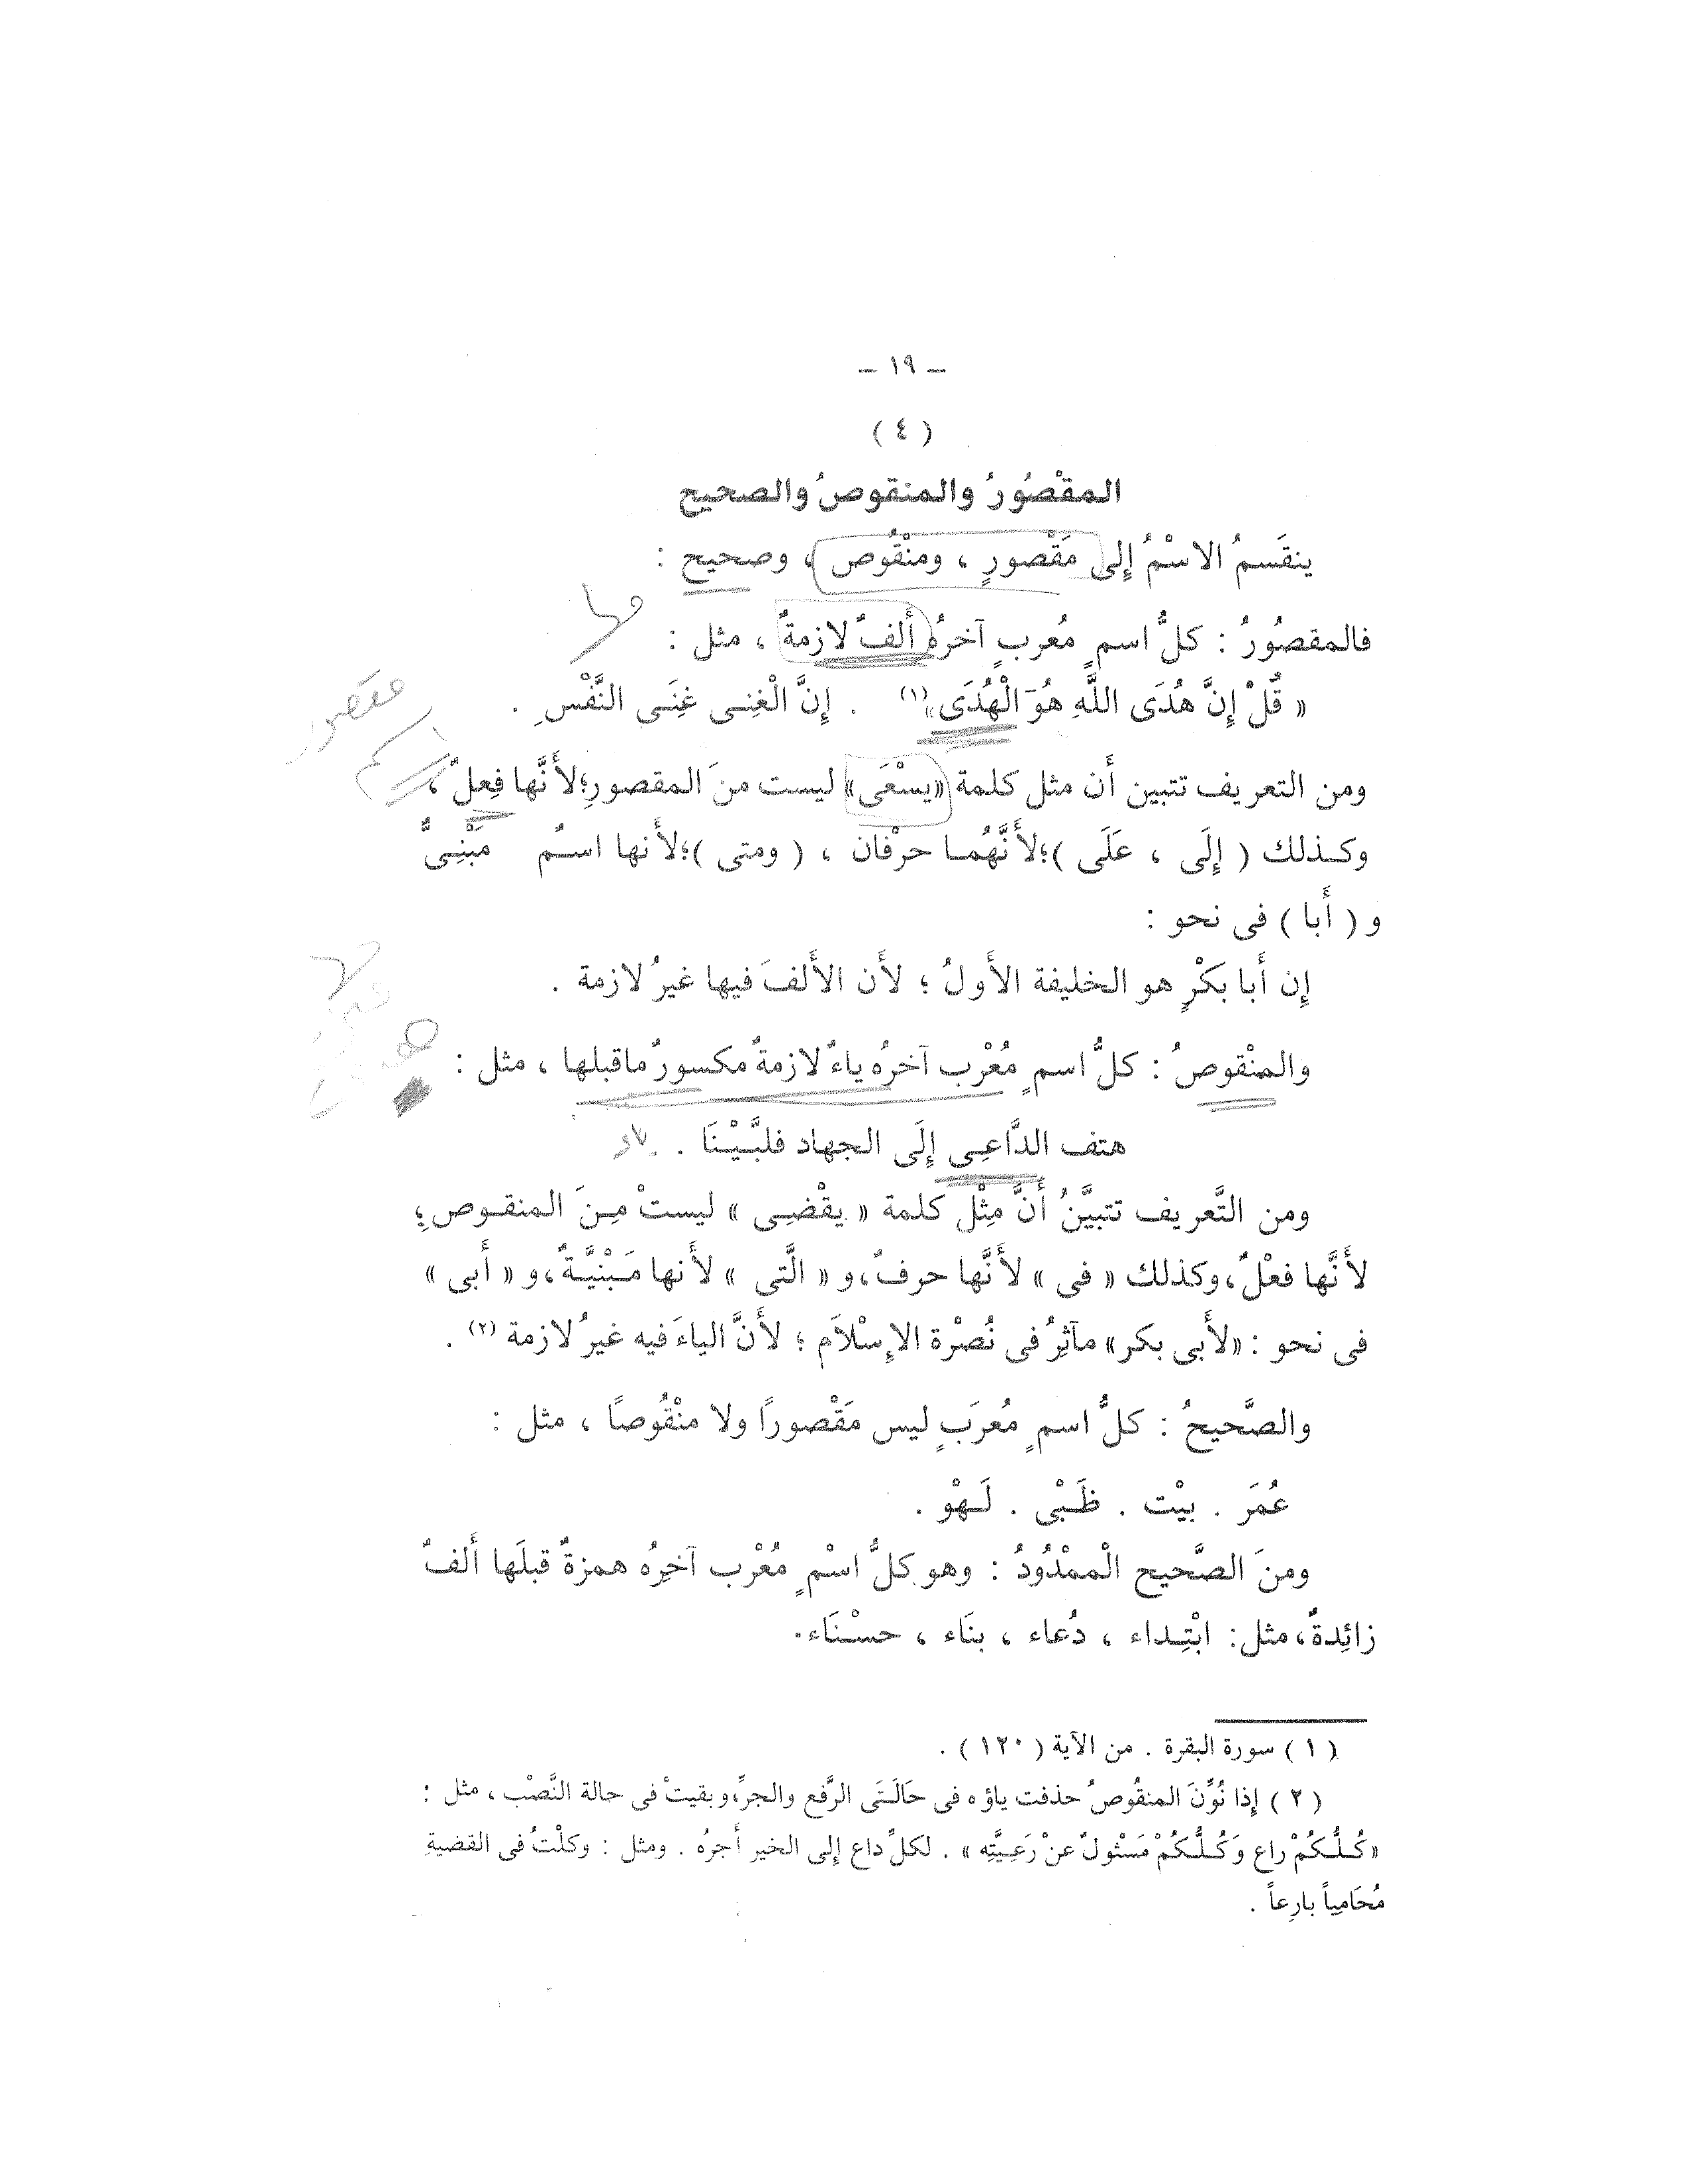 – ١٩ –
( ٤ )
المقْصُورُ والمنقوصُ والصحيح
ينقَسمُ الاسْمُ إِلى مَقْصورٍ ، ومنْقُوص ، وصحيح :
فالمقصُورُ : كلُّ اسمٍ مُعربٍ آخرُه ألفٌ لازمةٌ ، مثل :
« قُلْ إِنَّ هُدَى اللَّهِ هُوَ الْهُدَى»(١) . إِنَّ الْغِنى غِنَى النَّفْسِ .
ومن التعريف تتبين أَن مثل كلمة «يسْعَى» ليست منَ المقصورِ؛لأَنَّها فِعلٌ ،
وكذلك ( إِلَى ، عَلَى )؛لأَنَّهُما حرْفان ، ( ومتى )؛لأَنها اسمٌ مَبْنِىٌّ
و ( أَبا ) فى نحو :
إِن أَبا بكْرٍ هو الخليفة الأَولُ ؛ لأَن الأَلفَ فيها غيرُ لازمة .
والمنْقوصُ : كلُّ اسمٍ مُعْرب آخرُه ياءٌ لازمةٌ مكسورٌ ماقبلها ، مثل :
هتف الدَّاعِى إِلَى الجهاد فلبَّيْنَا .
ومن التَّعريف تتبيَّنُ أَنَّ مِثْل كلمة « يقْضِى » ليستْ مِنَ المنقوصِ؛
لأَنَّها فعْلٌ،وكذلك « فى » لأَنَّها حرفٌ،و « الَّتى » لأَنها مَبْنيَّةٌ،و « أَبى »
فى نحو : «لأَبى بكر» مآثِرُ فى نُصْرة الإِسْلاَم ؛ لأَنَّ الياءَ فيه غيرُ لازمة (٢) .
والصَّحيحُ : كلُّ اسمٍ مُعرَبٍ ليس مَقْصوراً ولا منْقُوصاً ، مثل :
عُمَر . بيْت . ظَبْى . لَهْو .
ومنَ الصَّحيح الْممْدُودُ : وهو كلُّ اسْمٍ مُعْرب آخِرُه همزةٌ قبلَها أَلفٌ
زائِدةٌ،مثل: ابْتِداء ، دُعاء ، بنَاء ، حسْنَاء.
( ١ ) سورة البقرة . من الآية ( ١٢٠ ) .
( ٢ ) إِذا نُوِّنَ المنقُوصُ حذفت ياؤه فى حَالَتَى الرَّفع والجرِّ،وبقيتْ فى حالة النَّصْب ، مثل :
«كُلُّكُمْ راع وَكُلُّكُمْ مَسْئولٌ عنْ رَعِيَّتِه » . لكلِّ داع إِلى الخير أَجرُه . ومثل : وكلْتُ فى القضيةِ
مُحَامِياً بارِعاً .
مقصور